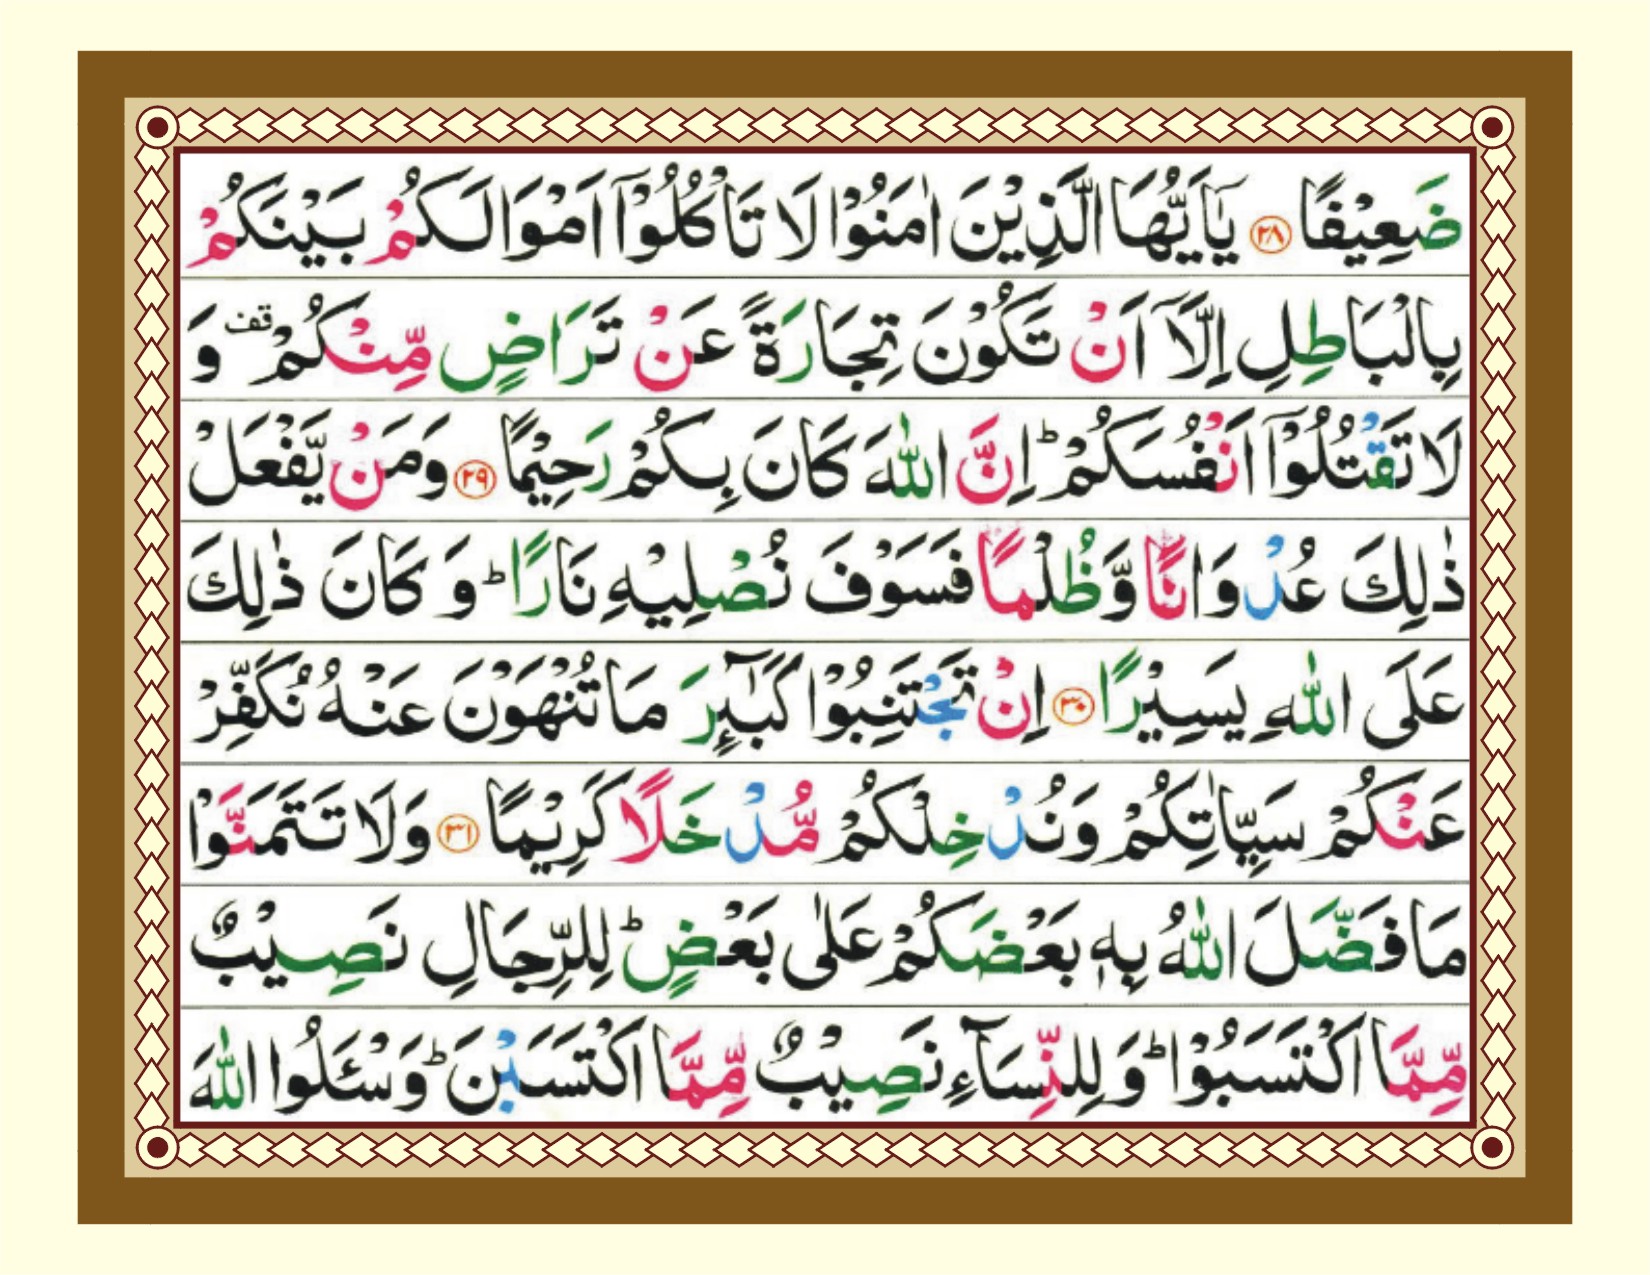 ضَعِيْفًا ﴿۲۸﴾ يٰۤاَيُّهَا الَّذِيْنَ اٰمَنُوْا لَا تَاْكُلُوْۤا اَمْوَالَكُمْ بَيْنَكُمْ
بِالْبَاطِلِ اِلَّاۤ اَنْ تَكُوْنَ تِجَارَةً عَنْ تَرَاضٍ مِّنْكُمْ قف وَ
لَا تَقْتُلُوْۤا اَنْفُسَكُمْ ؕ اِنَّ اللّٰهَ كَانَ بِكُمْ رَحِيْمًا ﴿۲۹﴾ وَمَنْ يَّفْعَلْ
ذٰلِكَ عُدْوَانًا وَّظُلْمًا فَسَوْفَ نُصْلِيْهِ نَارًا ؕ وَ كَانَ ذٰلِكَ
عَلَى اللّٰهِ يَسِيْرًا ﴿۳۰﴾ اِنْ تَجْتَنِبُوْا كَبَآئِرَ مَا تُنْهَوْنَ عَنْهُ نُكَفِّرْ
عَنْكُمْ سَيِّاٰتِكُمْ وَنُدْخِلْكُمْ مُّدْخَلًا كَرِيْمًا ﴿۳۱﴾ وَلَا تَتَمَنَّوْا
مَا فَضَّلَ اللّٰهُ بِهٖ بَعْضَكُمْ عَلٰى بَعْضٍ ؕ لِلرِّجَالِ نَصِيْبٌ
مِّمَّا اكْتَسَبُوْا ؕ وَلِلنِّسَآءِ نَصِيْبٌ مِّمَّا اكْتَسَبْنَ ؕ وَسْئَلُوا اللّٰهَ